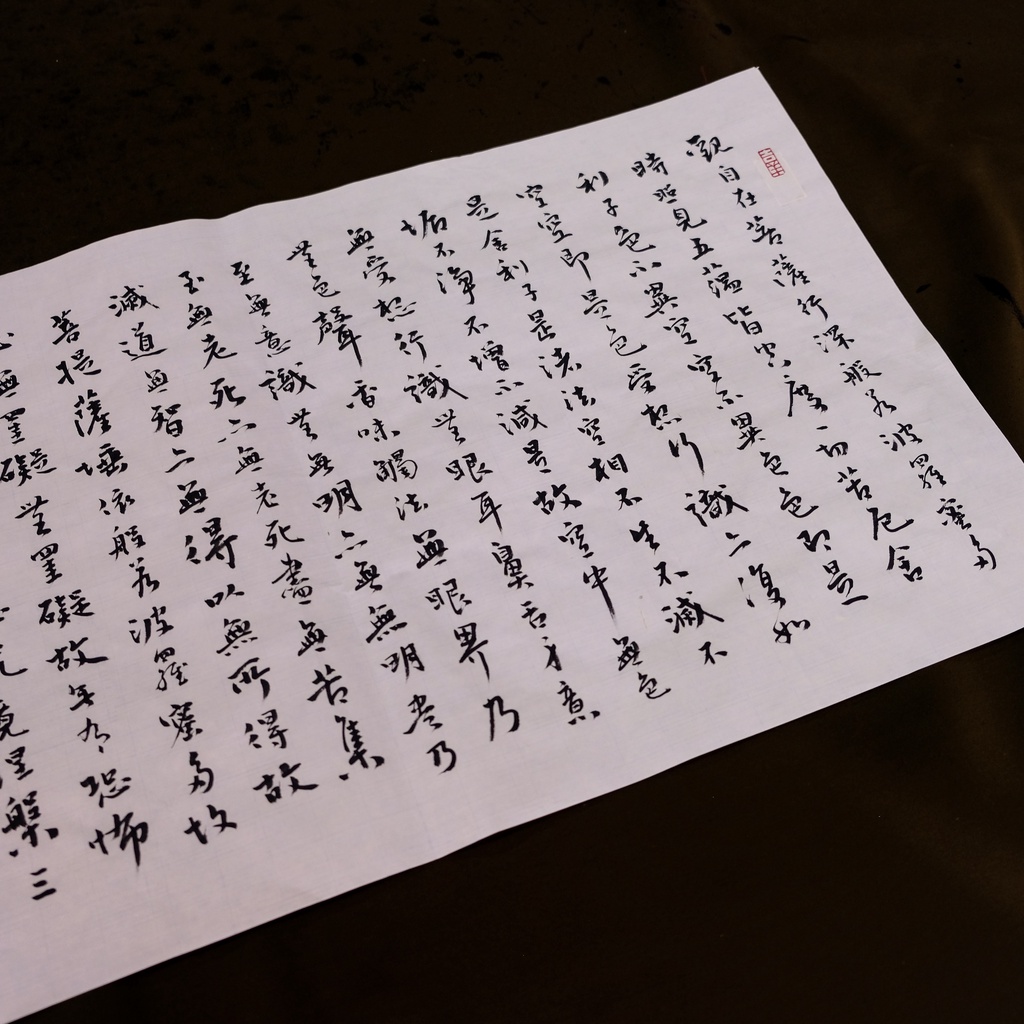 觀自在菩薩行深般若波羅蜜多
時照見五蘊皆空度一切苦厄舍
利子色不異空空不異色色即是
空空即是色受想行識亦復如
是舍利子是諸法空相不生不滅不
垢不淨不增不減是故空中無色
無受想行識無眼耳鼻舌身意
無色聲香味觸法無眼界乃
至無意識無無明亦無無明盡乃
至無老死亦無老死盡無苦集
滅道無智亦無得以無所得故
菩提薩埵依般若波羅蜜多故
心無罣礙無罣礙故無有恐怖
究竟涅槃三